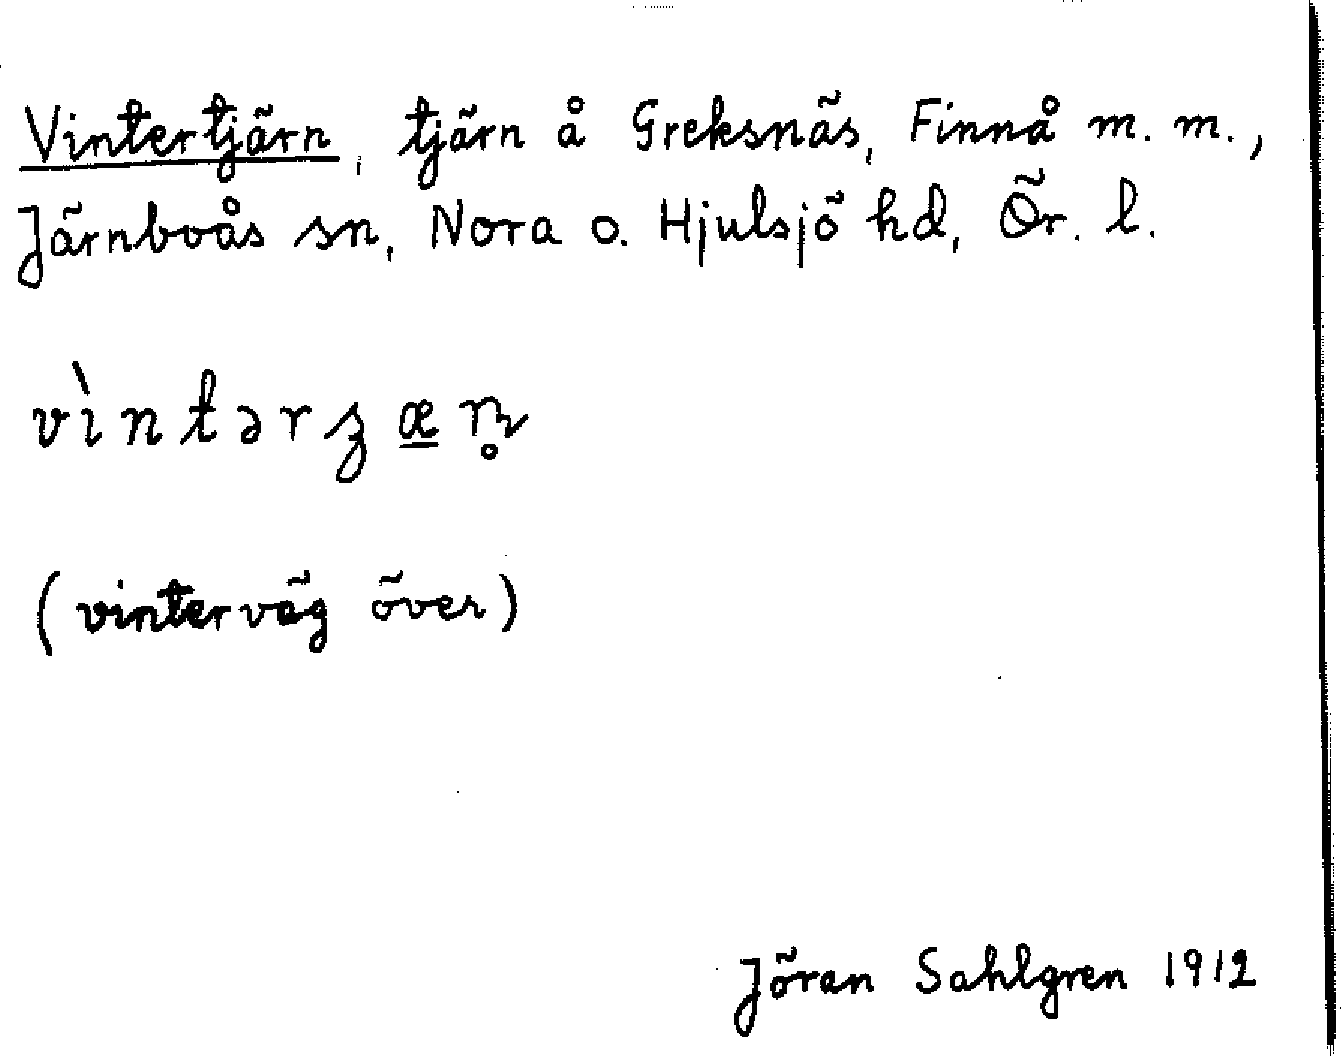 Vintertjärn, tjärn å Greksnäs, Finnå m. m.,
Järnboås sn, Nora o. Hjulsjö hd, Ör. l.
(vinterväg över)
Jöran Sahlgren 1912